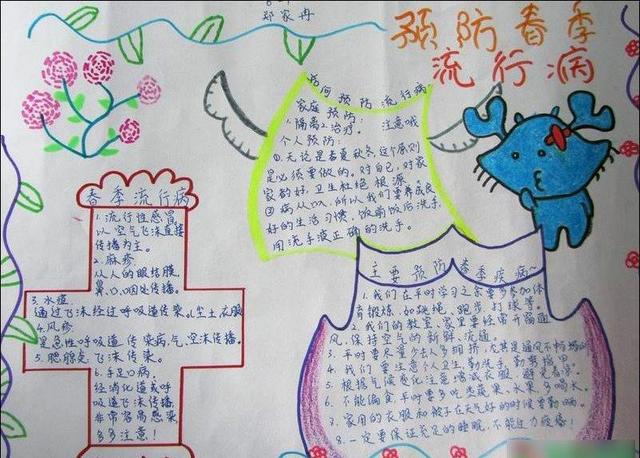 郑家冉
预防春季
流行病
如何预防流行病
家庭预防:
1.隔离2.治疗。 注意哦
个人预防:
①.无论是春夏秋冬,这个原则
是必须要做的,对自己,对家
家韵好,卫生杜绝根源。
②病从口入,所以我们要养成良
好的生活习惯,饭前饭后洗手,
用洗手液正确的洗手。
春季流行病
1.流行性感冒
以空气飞沫直接
传播为主。
2.麻疹
从人的眼结膜,
鼻、口、咽处传播。
3.水痘
通过飞沫经过呼吸道传染。(尘土衣服
4.风疹
是急性呼吸道传染病,气,空沫传播。
5.腮腺炎飞沫传染。
6.手足口病:
经消化道或呼
吸道飞沫传播,
非常容易感染,
多多注意!
主要预防春季疾病~
1.我们在平时学习之余要多参加体
育锻炼,如跳绳,跑步,打球等。
2.我们的教室,家里要经常开窗通
风,保持空气的新鲜,流通。
3.平时要尽量少去人多拥挤,尤其是通风不畅场所
4.我们要注意个人卫生,勤洗手,勤剪指甲。
5.根据气候变化注意增减衣服
6.不能偏食,平时要多吃类蔬果,水果,多喝水。
7.家用的衣服和被子在天气好的时候要勤晒。
8.一定要保证充足的睡眠,不能过分疲倦!